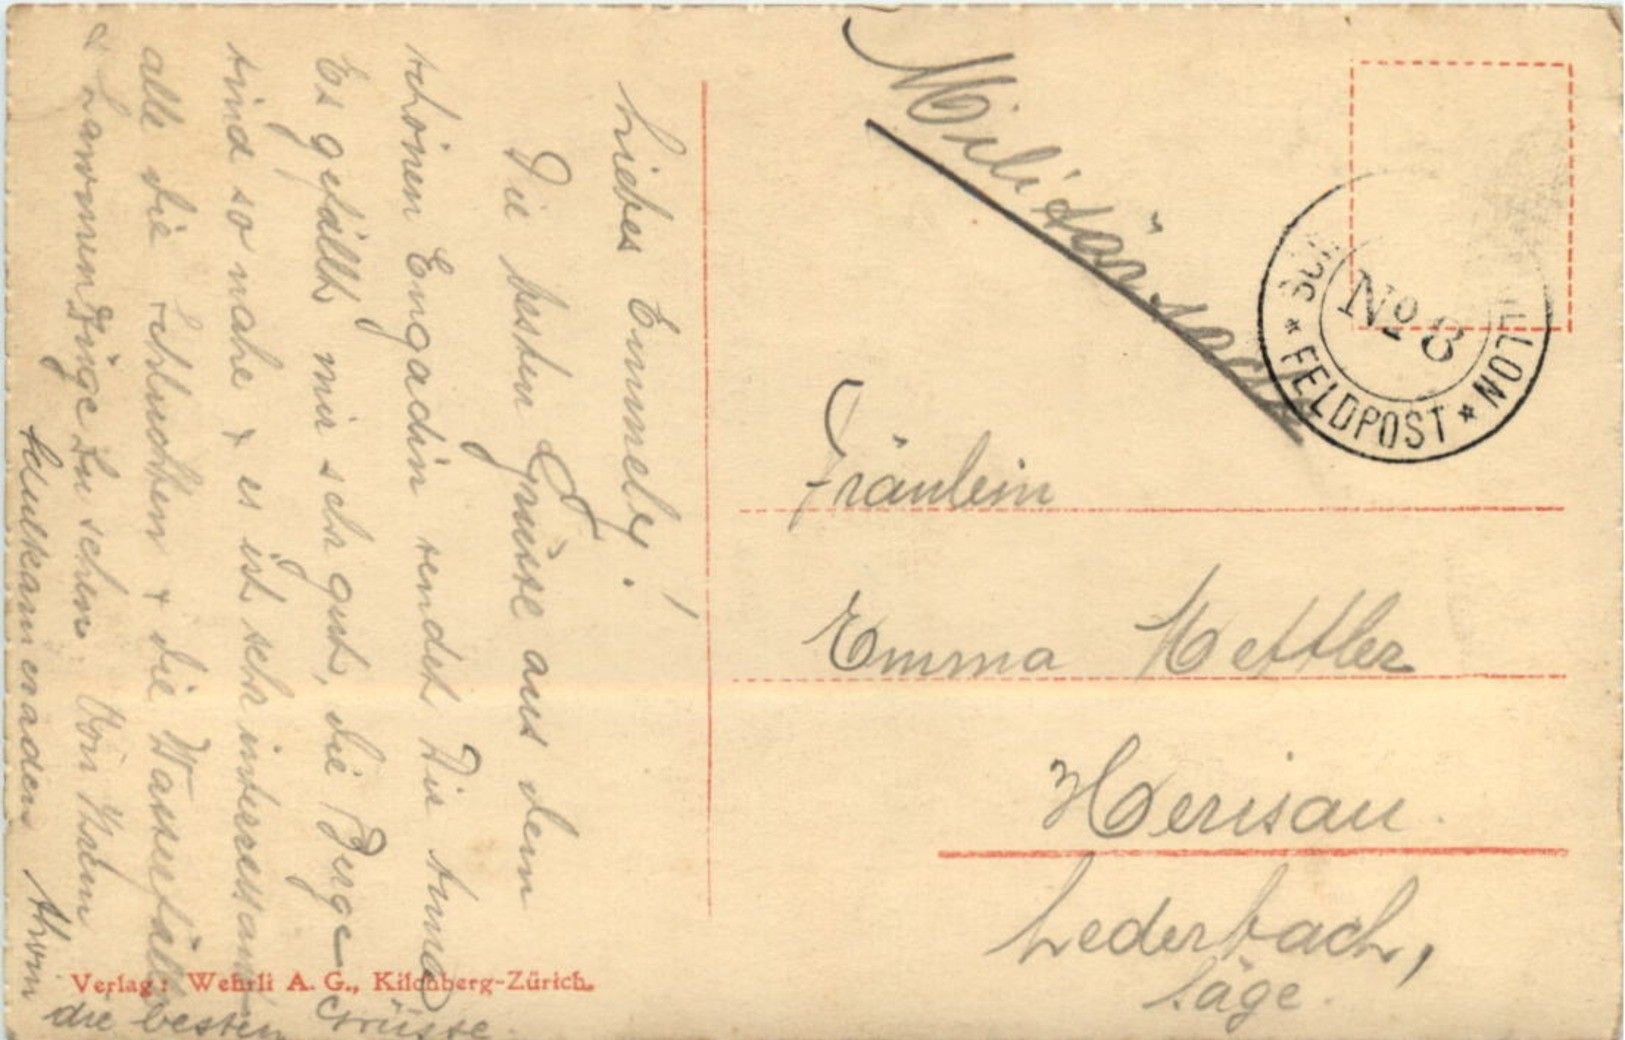 Liebes Emmely!
Die besten Grüsse aus dem
schönen Engadin sendet Dir Anna
Es gefällt mir sehr gut, die Berge
sind so nahe & es ist sehr interessant
alle die Schluchten & die Wasserfälle
& Lawinenzüge zu sehen. Von
Schulkameraden
die besten Grüsse.
Militärsache
No 8
FELDPOST
Fräulein
Emma Mettler
Herisau.
Lederbach,
Säge.
Verlag: Wehrli A. G., Kilchberg-Zürich.